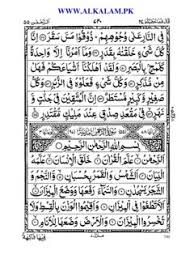 WWW.ALKALAM.PK
فِي النَّارِ عَلٰى وُجُوْهِهِمْ ذُوْقُوْا مَسَّ سَقَرَ اِنَّا
كُلَّ شَيْءٍ خَلَقْنٰهُ بِقَدَرٍ وَمَآ اَمْرُنَآ اِلَّا وَاحِدَةٌ
كَلَمْحٍ بِالْبَصَرِ وَلَقَدْ اَهْلَكْنَآ اَشْيَاعَكُمْ فَهَلْ
مِنْ مُّدَّكِرٍ وَكُلُّ شَيْءٍ فَعَلُوْهُ فِي الزُّبُرِ وَكُلُّ
صَغِيْرٍ وَّكَبِيْرٍ مُّسْتَطَرٌ اِنَّ الْمُتَّقِيْنَ فِيْ جَنّٰتٍ وَّ
نَهَرٍ فِيْ مَقْعَدِ صِدْقٍ عِنْدَ مَلِيْكٍ مُّقْتَدِرٍ
بِسْمِ اللّٰهِ الرَّحْمٰنِ الرَّحِيْمِ
اَلرَّحْمٰنُ عَلَّمَ الْقُرْاٰنَ خَلَقَ الْاِنْسَانَ عَلَّمَهُ
الْبَيَانَ اَلشَّمْسُ وَالْقَمَرُ بِحُسْبَانٍ وَّالنَّجْمُ وَ
الشَّجَرُ يَسْجُدٰنِ وَالسَّمَآءَ رَفَعَهَا وَوَضَعَ الْمِيْزَانَ
اَلَّا تَطْغَوْا فِي الْمِيْزَانِ وَاَقِيْمُوا الْوَزْنَ بِالْقِسْطِ وَلَا
تُخْسِرُوا الْمِيْزَانَ وَالْاَرْضَ وَضَعَهَا لِلْاَنَامِ
فِيْهَا فَاكِهَةٌ